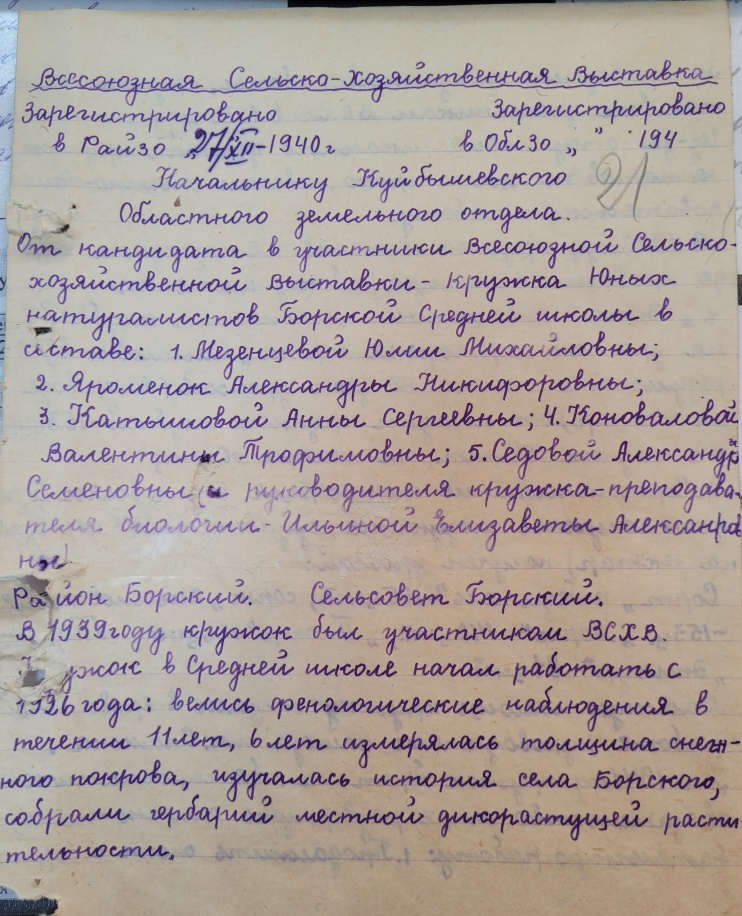 Всесоюзная Сельско-хозяйственная Выставка
Зарегистрировано Зарегистрировано
в Райзо „27/XII-1940г в Облзо „ ” 194
21
Начальнику Куйбышевского
Областного земельного отдела.
От кандидата в участники Всесоюзной Сельско-
хозяйственной Выставки - кружка Юных
натуралистов Борской Средней школы в
составе: 1. Мезенцевой Юлии Михайловны;
2. Яроменок Александры Никифоровны;
3. Катышовой Анны Сергеевны; 4. Коноваловой
Валентины Трофимовны; 5. Седовой Александр
Семеновны (и руководителя кружка-преподава-
теля биологии - Ильиной Елизаветы Алексанров
ны)
Район Борский. Сельсовет Борский.
В 1939 году кружок был участникам ВСХВ.
ужок в Средней школе начал работать с
1926 года: велись фенологические наблюдения в
течении 11 лет, 6 лет измерялась толщина снеж-
ного покрова, изучалась история села Борского,
собрали гербарий местной дикорастущей расти-
тельности.